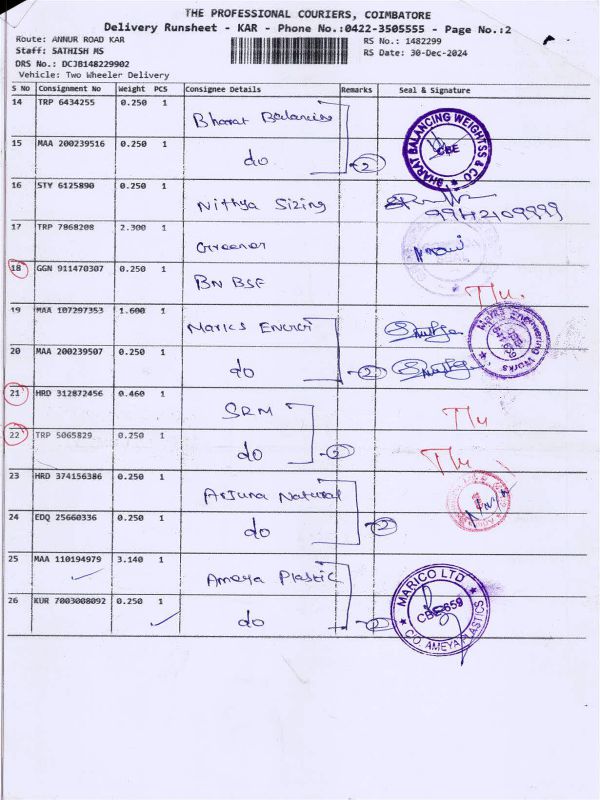 THE PROFESSIONAL COURIERS, COIMBATORE
Delivery Runsheet - KAR - Phone No.:0422-3505555 - Page No.:2
Route: ANNUR ROAD KAR
RS No.: 1482299
Staff: SATHISH MS
RS Date: 30-Dec-2024
DRS No.: DCJB148229902
Vehicle: Two Wheeler Delivery
S No Consignment No Weight PCS Consignee Details Remarks Seal & Signature
14 TRP 6434255 0.250 1 Bharat Balancing
BHARAT BALANCING WEIGHTSS & CO CBE
15 MAA 200239516 0.250 1 do 2
16 STY 6125890 0.250 1 Nithya Sizing
17 TRP 7868208 2.300 1 Greener
18 GGN 911470307 0.250 1 BN BSF
19 MAA 107297353 1.600 1 Marics Enner
Engineering Works
20 MAA 200239507 0.250 1 do 2
21 HRD 312872456 0.460 1 SRM
22 TRP 5065829 0.250 1 do 2
23 HRD 374156386 0.250 1 Arjuna Natural
24 EDQ 25660336 0.250 1 do 2
25 MAA 110194979 3.140 1 Ameya Plastic
MARICO LTD CBE-659 C/O. AMEYA PLASTICS
26 KUR 7003008092 0.250 1 do 2